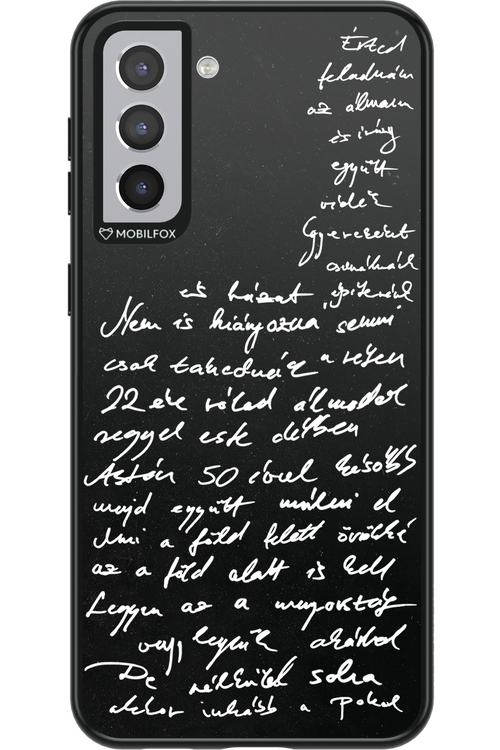 MOBILFOX
Érted
feladnám
az álmam
és irány
együtt
vidék
Gyerekeket
csinálnék
és házat építenék
Nem is hiányozna semmi
csak takednáz a réten
22 éve rólad álmodok
reggel este délben
Aztán 50 évvel később
majd együtt múlni el
Ami a föld felett örökké
az a föld alatt is kell
Legyen az a mennyország
vagy legyünk akárhol
De nélküled soha
akkor inkább a pokol